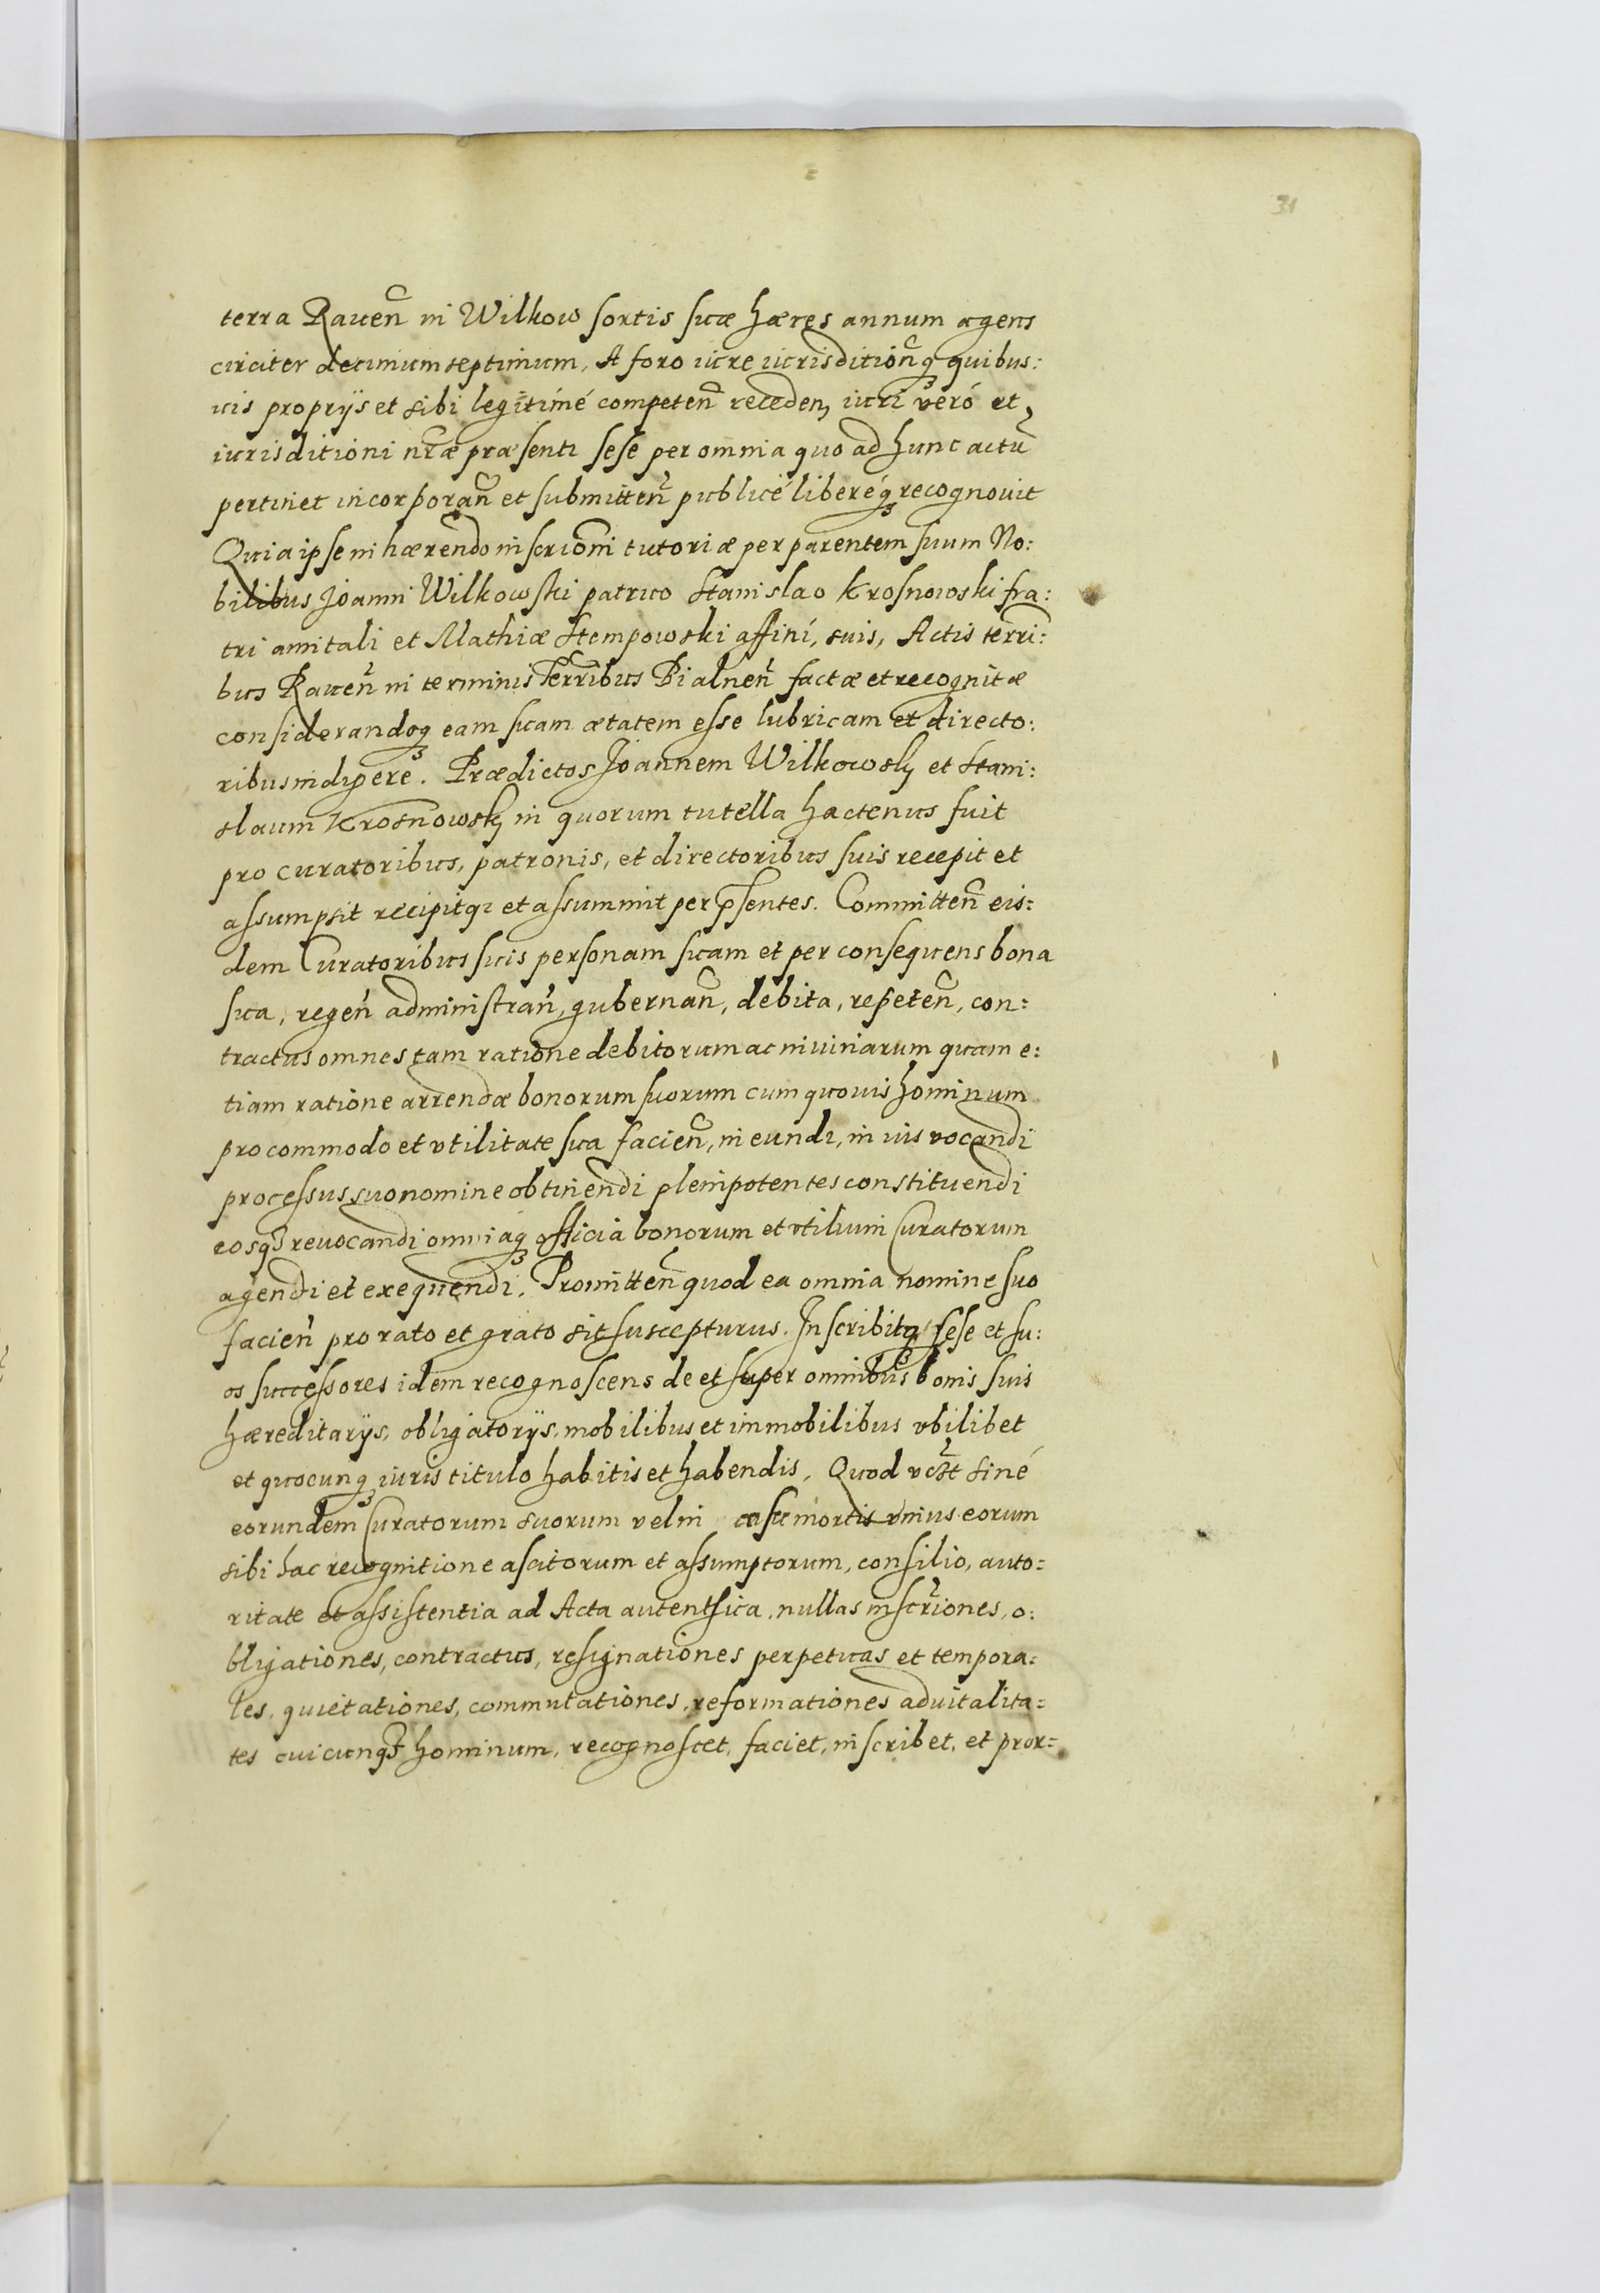 31
terra Raueñ in Wilkow sortis suæ hæres annum agens
circiter decimum septimum, A foro iure iurisditionq̃ quibus:
uis proprijs et sibi legitimé competeñ receden, iuri veró et
iurisditioni nr̃æ præsenti sese per omnia quo ad hunc actũ
pertinet incorporañ et submitteñ publicé liberéq recognouit
Quia ipse inhærendo inscrio̅ni tutoriæ per parentem suum No:
bilibus Joanni Wilkowski patruo Stanislao Krosnowski fra:
tri amitali et Mathiæ Stempowski affini, suis, Actis terri:
bus Raueñ in terminis Terr̃ibus Bialneñ factæ et recognitæ
considerandoq eam suam ætatem esse lubricam et directo:
ribus indigere. Prædictos Joannem Wilkowsky et Stani:
slaum Krosnowsky in quorum tutella hactenus fuit
pro curatoribus, patronis, et directoribus suis recepit et
assumpsit recipitqz et assummit per p̃sentes. Committeñ eis:
dem Curatoribus suis personam suam et per consequens bona
sua, regeñ administrañ, gubernañ, debita, repeteñ, con:
tractus omnes tam ratione debitorum ac iniuriarum quam e:
tiam ratione arrendæ bonorum suorum cum quouis hominum
pro commodo et vtilitate sua facieñ, in eundi, in ius vocandi
processus suo nomine obtinendi plenipotentes constituendi
eosqз reuocandi omniaq officia bonorum et vtilium Curatorum
agendi et exequendi. Promitteñ quod ea omnia nomine suo
facieñ pro rato et grato sit suscepturus. Inscribitq sese et su:
os successores idem recognoscens de et super omnibus bonis suis
hæreditarijs, obligatorijs, mobilibus et immobilibus vbilibet
et quocunq iuris titulo habitis et habendis. Quod vc̃зt siné
eorundem Curatorum suorum vel in casu mortis vnius eorum
sibi hac recognitione ascitorum et assumptorum, consilio, auto:
ritate et assistentia ad Acta autenthica, nullas inscr̃iones, o:
bligationes, contractus, resignationes perpetuas et tempora:
les, quietationes, commutationes, reformationes aduitalita:
tes cuicunqз hominum, recognoscet, faciet, inscribet, et pror: